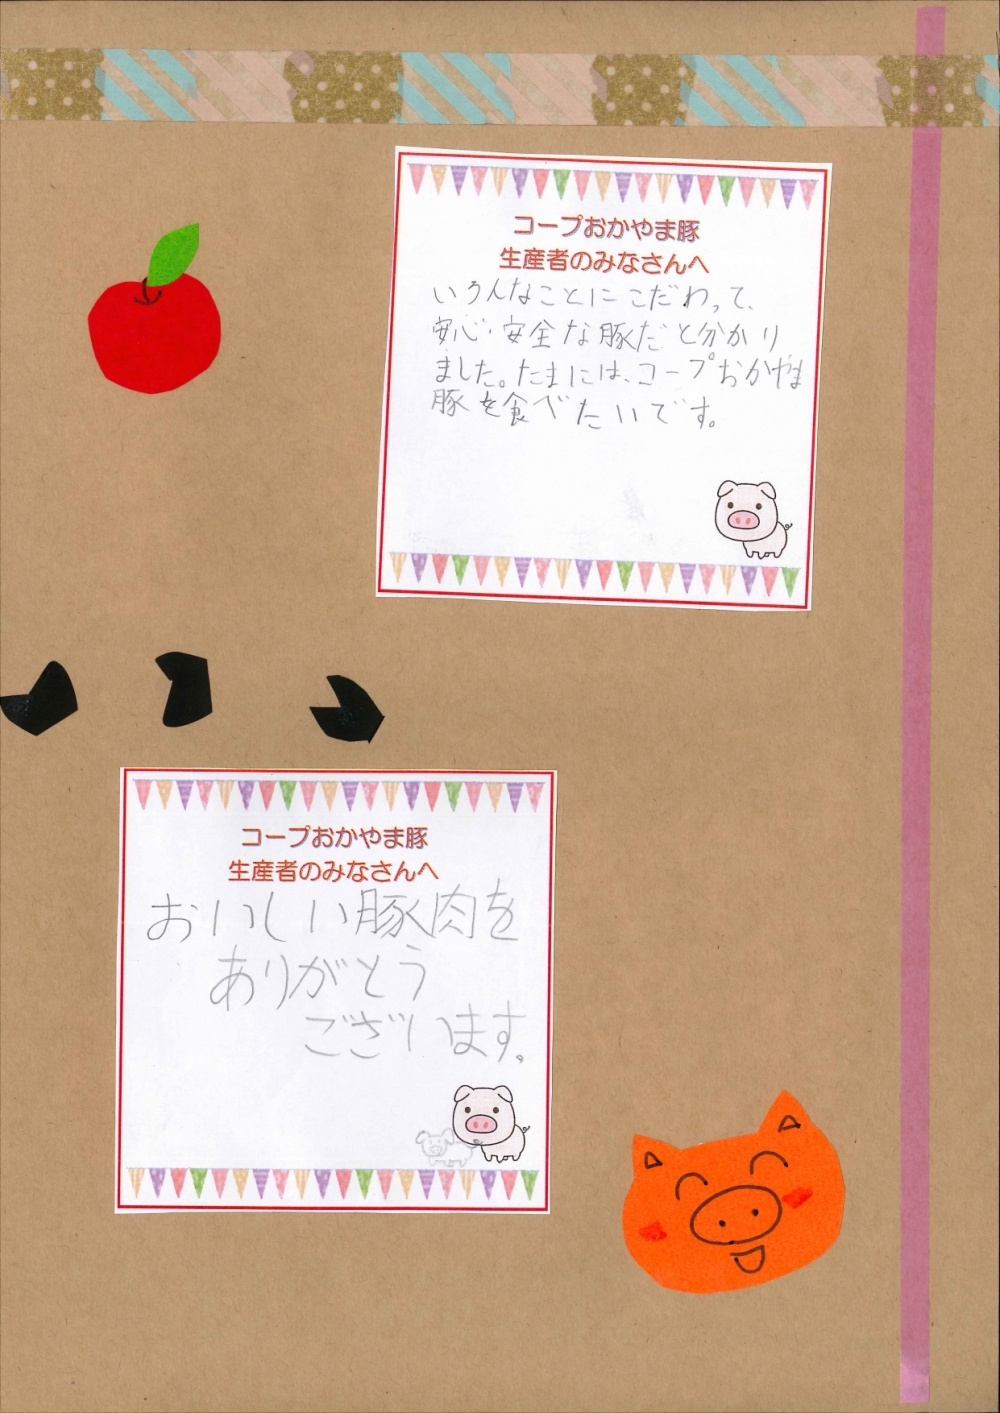 コープおかやま豚
生産者のみなさんへ
いろんなことにこだわって、
安心・安全な豚だと分かり
ました。たまには、コープおかやま
豚を食べたいです。
コープおかやま豚
生産者のみなさんへ
おいしい豚肉を
ありがとう
ございます。